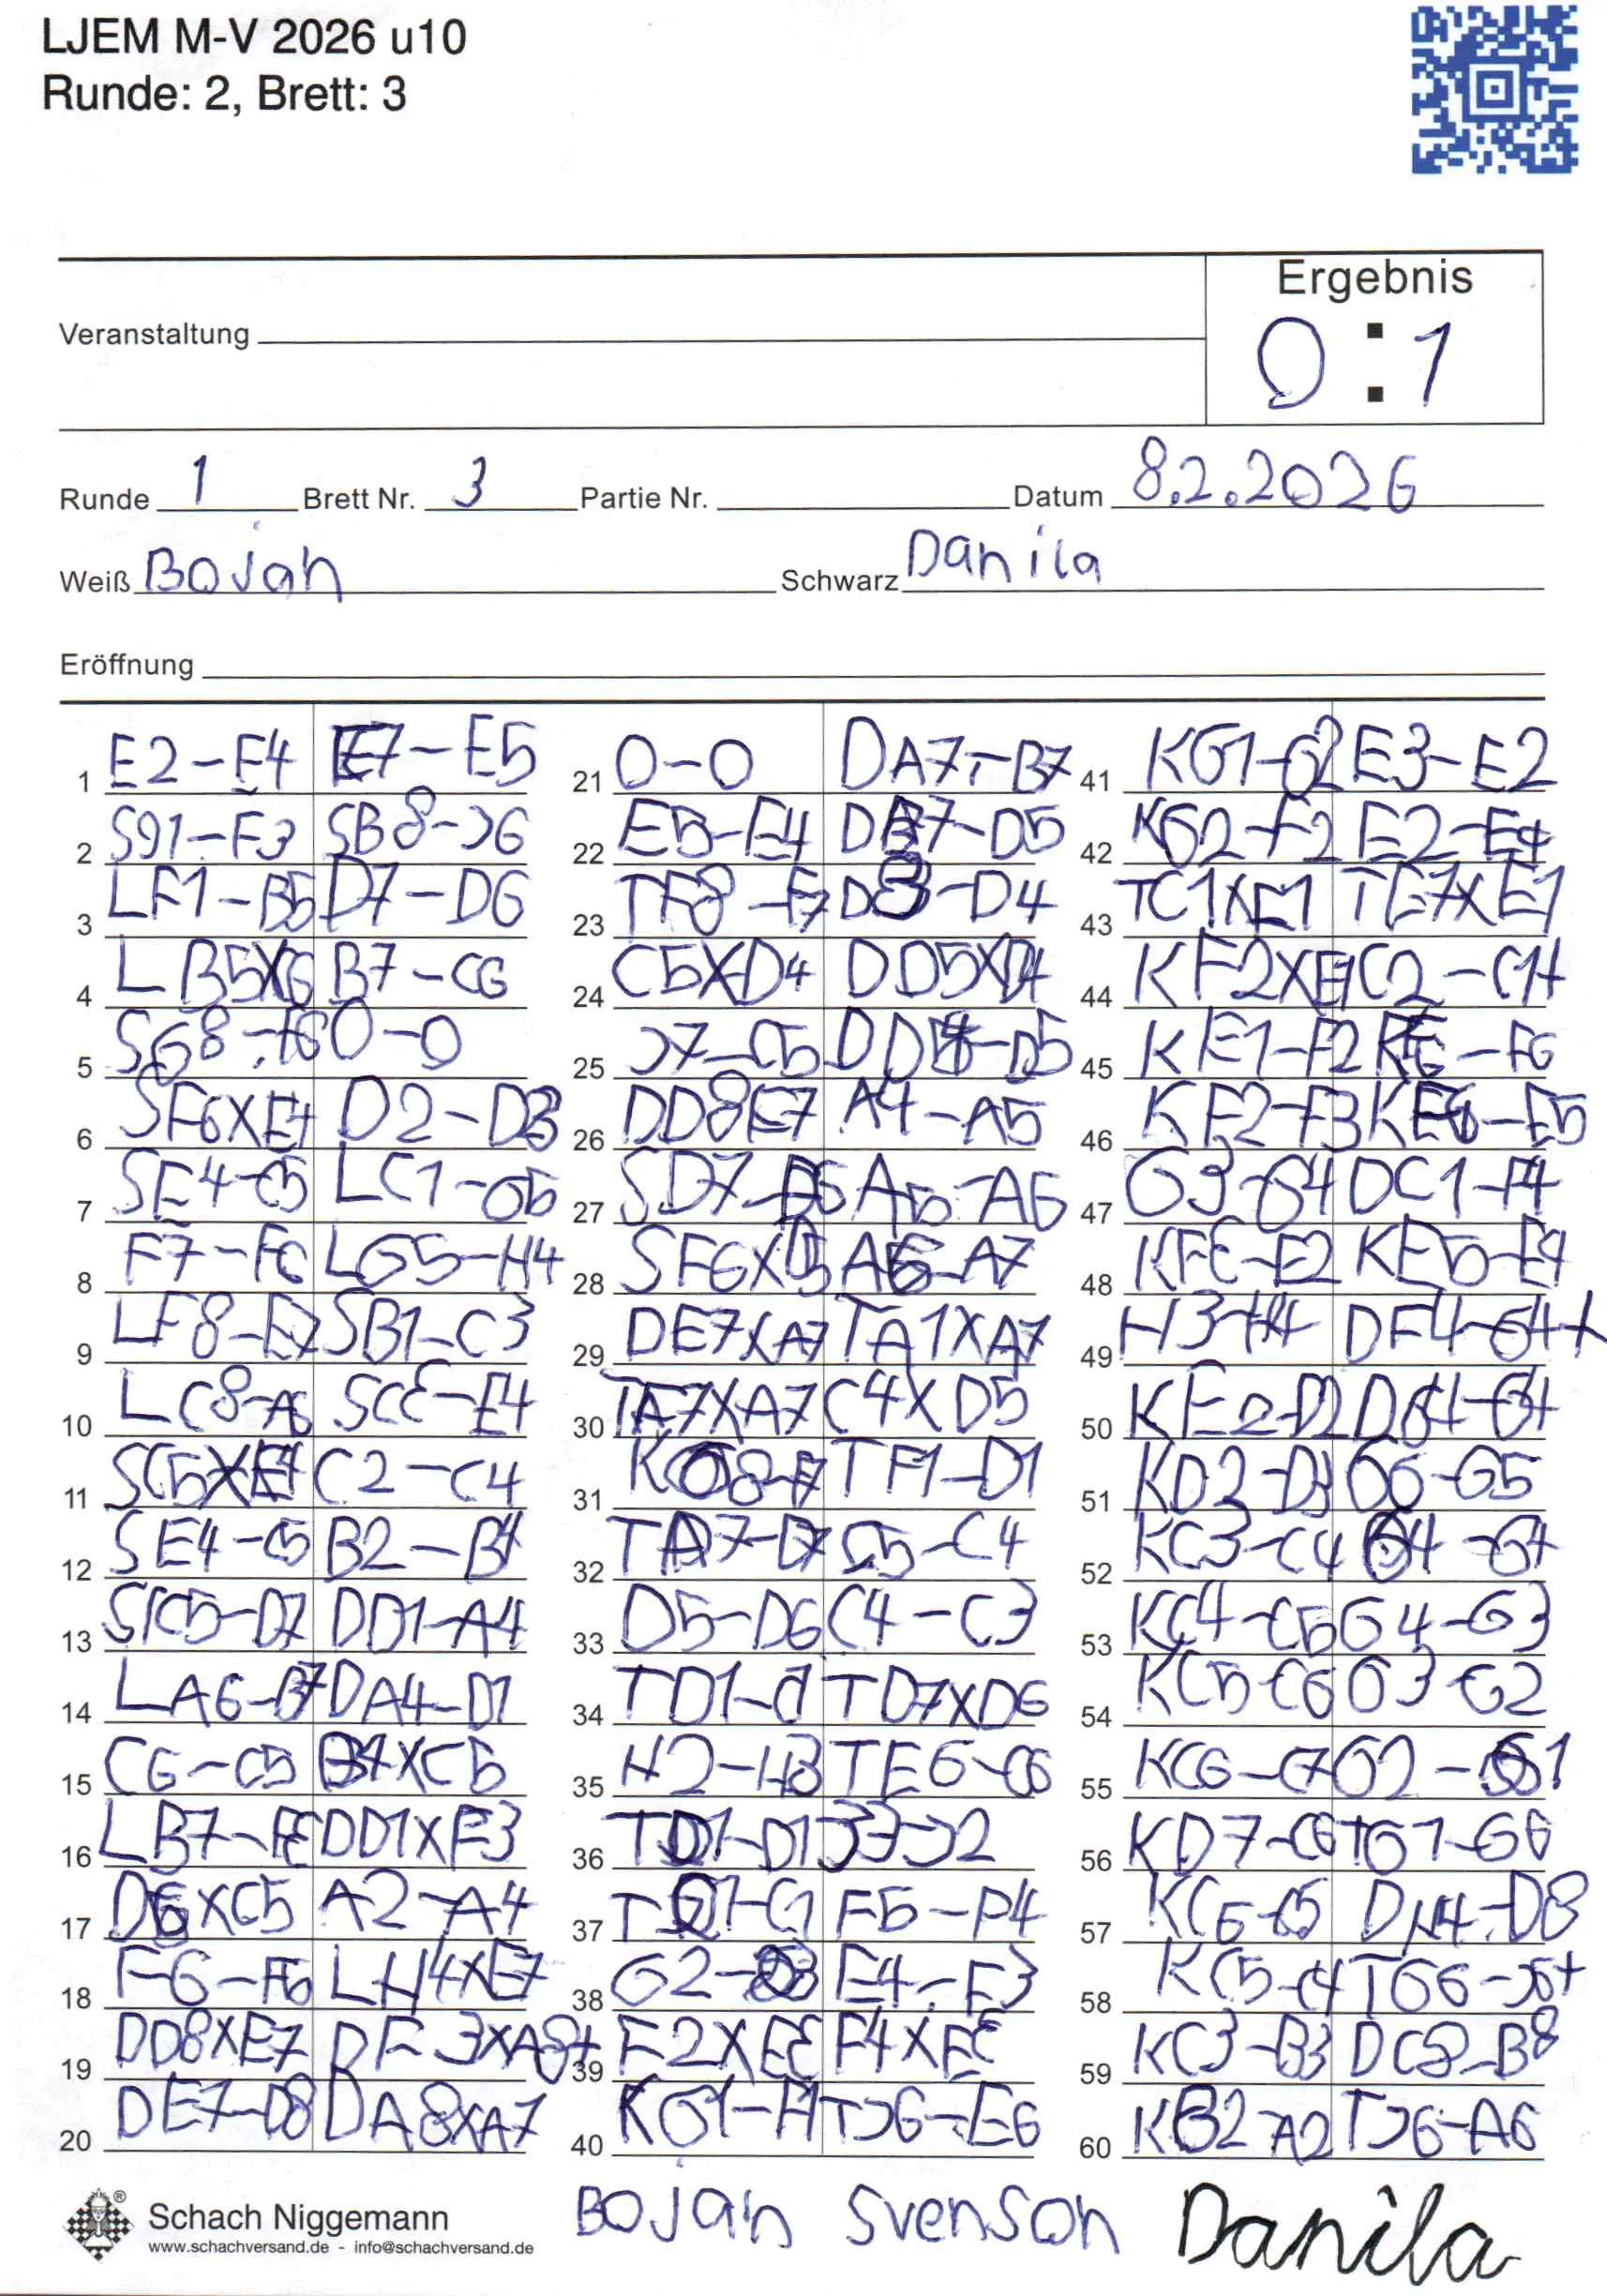 LJEM M-V 2026 u10
Runde: 2, Brett: 3
Ergebnis
Veranstaltung 0 : 1
Runde 1 Brett Nr. 3 Partie Nr. Datum 8.2.2026
Weiß Bojan Schwarz Danila
Eröffnung
1 E2-E4 E7-E5 21 0-0 DA7-B7 41 KG1-G2 E3-E2
2 S91-F3 SB8-C6 22 E5-E4 DB7-D5 42 KG2-F2 E2-E1
3 LF1-B5 D7-D6 23 TF8-F7 D3-D4 43 TC1XE1 TE7XE1
4 LB5XC6 B7-C6 24 C5XD4 DD5XD4 44 KF2XE1 C2-C1+
5 SG8-F6 0-0 25 C7-C5 DD4-D5 45 KE1-F2 KE6-F6
6 SF6XE4 D2-D3 26 DD8E7 A4-A5 46 KF2-F3 KF6-E5
7 SE4-C5 LC1-G5 27 SD7-F6 A5-A6 47 G3-G4 DC1-F4
8 F7-F6 LG5-H4 28 SF6XD5 A6-A7 48 KF3-E2 KE5-E4
9 LF8-E7 SB1-C3 29 DE7XA7 TA1XA7 49 H3-H4 DF4-G4+
10 LC8-A6 SC3-E4 30 TA7XA7 C4XD5 50 KE2-D2 DG4-G4
11 SC5XE4 C2-C4 31 KG8-F7 TF1-D1 51 KD2-D3 G6-G5
12 SE4-C5 B2-B4 32 TA7-D7 C5-C4 52 KC3-C4 G4-G4
13 SC5-D7 DD1-A4 33 D5-D6 C4-C3 53 KC4-C5 G4-G3
14 LA6-B7 DA4-D1 34 TD1-C1 TD7XD6 54 KC5-C6 G3-G2
15 C6-C5 B4XC5 35 H2-H3 TE6-C6 55 KC6-C7 G2-G1
16 LB7-F3 DD1XF3 36 TD1-D1 C3-C2 56 KD7-C6 TG1-G6
17 D6XC5 A2-A4 37 TD1-C1 F5-F4 57 KC6-C5 DH4-D8
18 F6-F5 LH4XE7 38 G2-G3 E4-E3 58 KC5-C4 TG6-C6+
19 DD8XE7 DF3XA8+ 39 F2XE3 F4XE3 59 KC3-B3 DC8-B8
20 DE7-D8 DA8XA7 40 KG1-H1 TC6-E6 60 KB2-A2 TC6-A6
Schach Niggemann
www.schachversand.de - info@schachversand.de
Bojan Svenson Danila